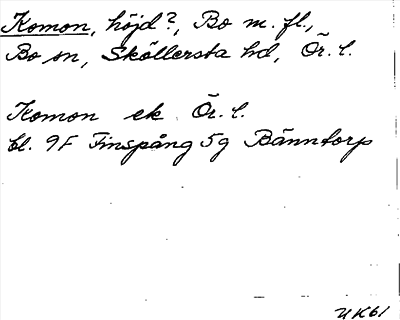 Komon, höjd?, Bo m. fl.,
Bo sn, Sköllersta hd, Ör. l.
Komon ek Ör. l.
bl. 9F Finspång 5g Bänntorp
UK61